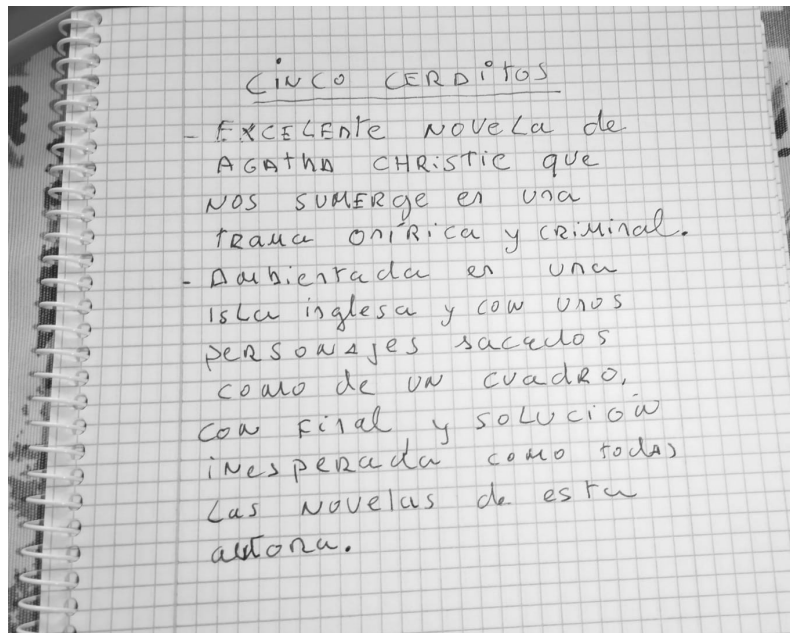 CINCO CERDITOS
- EXCELENTE NOVELA de
AGATHA CHRISTIE que
NOS SUMERGE en una
TRAMA ONÍRICA y CRIMINAL.
- Ambientada en una
ISLA inglesa y con unos
personajes sacados
como de un cuadro,
con final y solución
inesperada como todas
Las novelas de esta
autora.